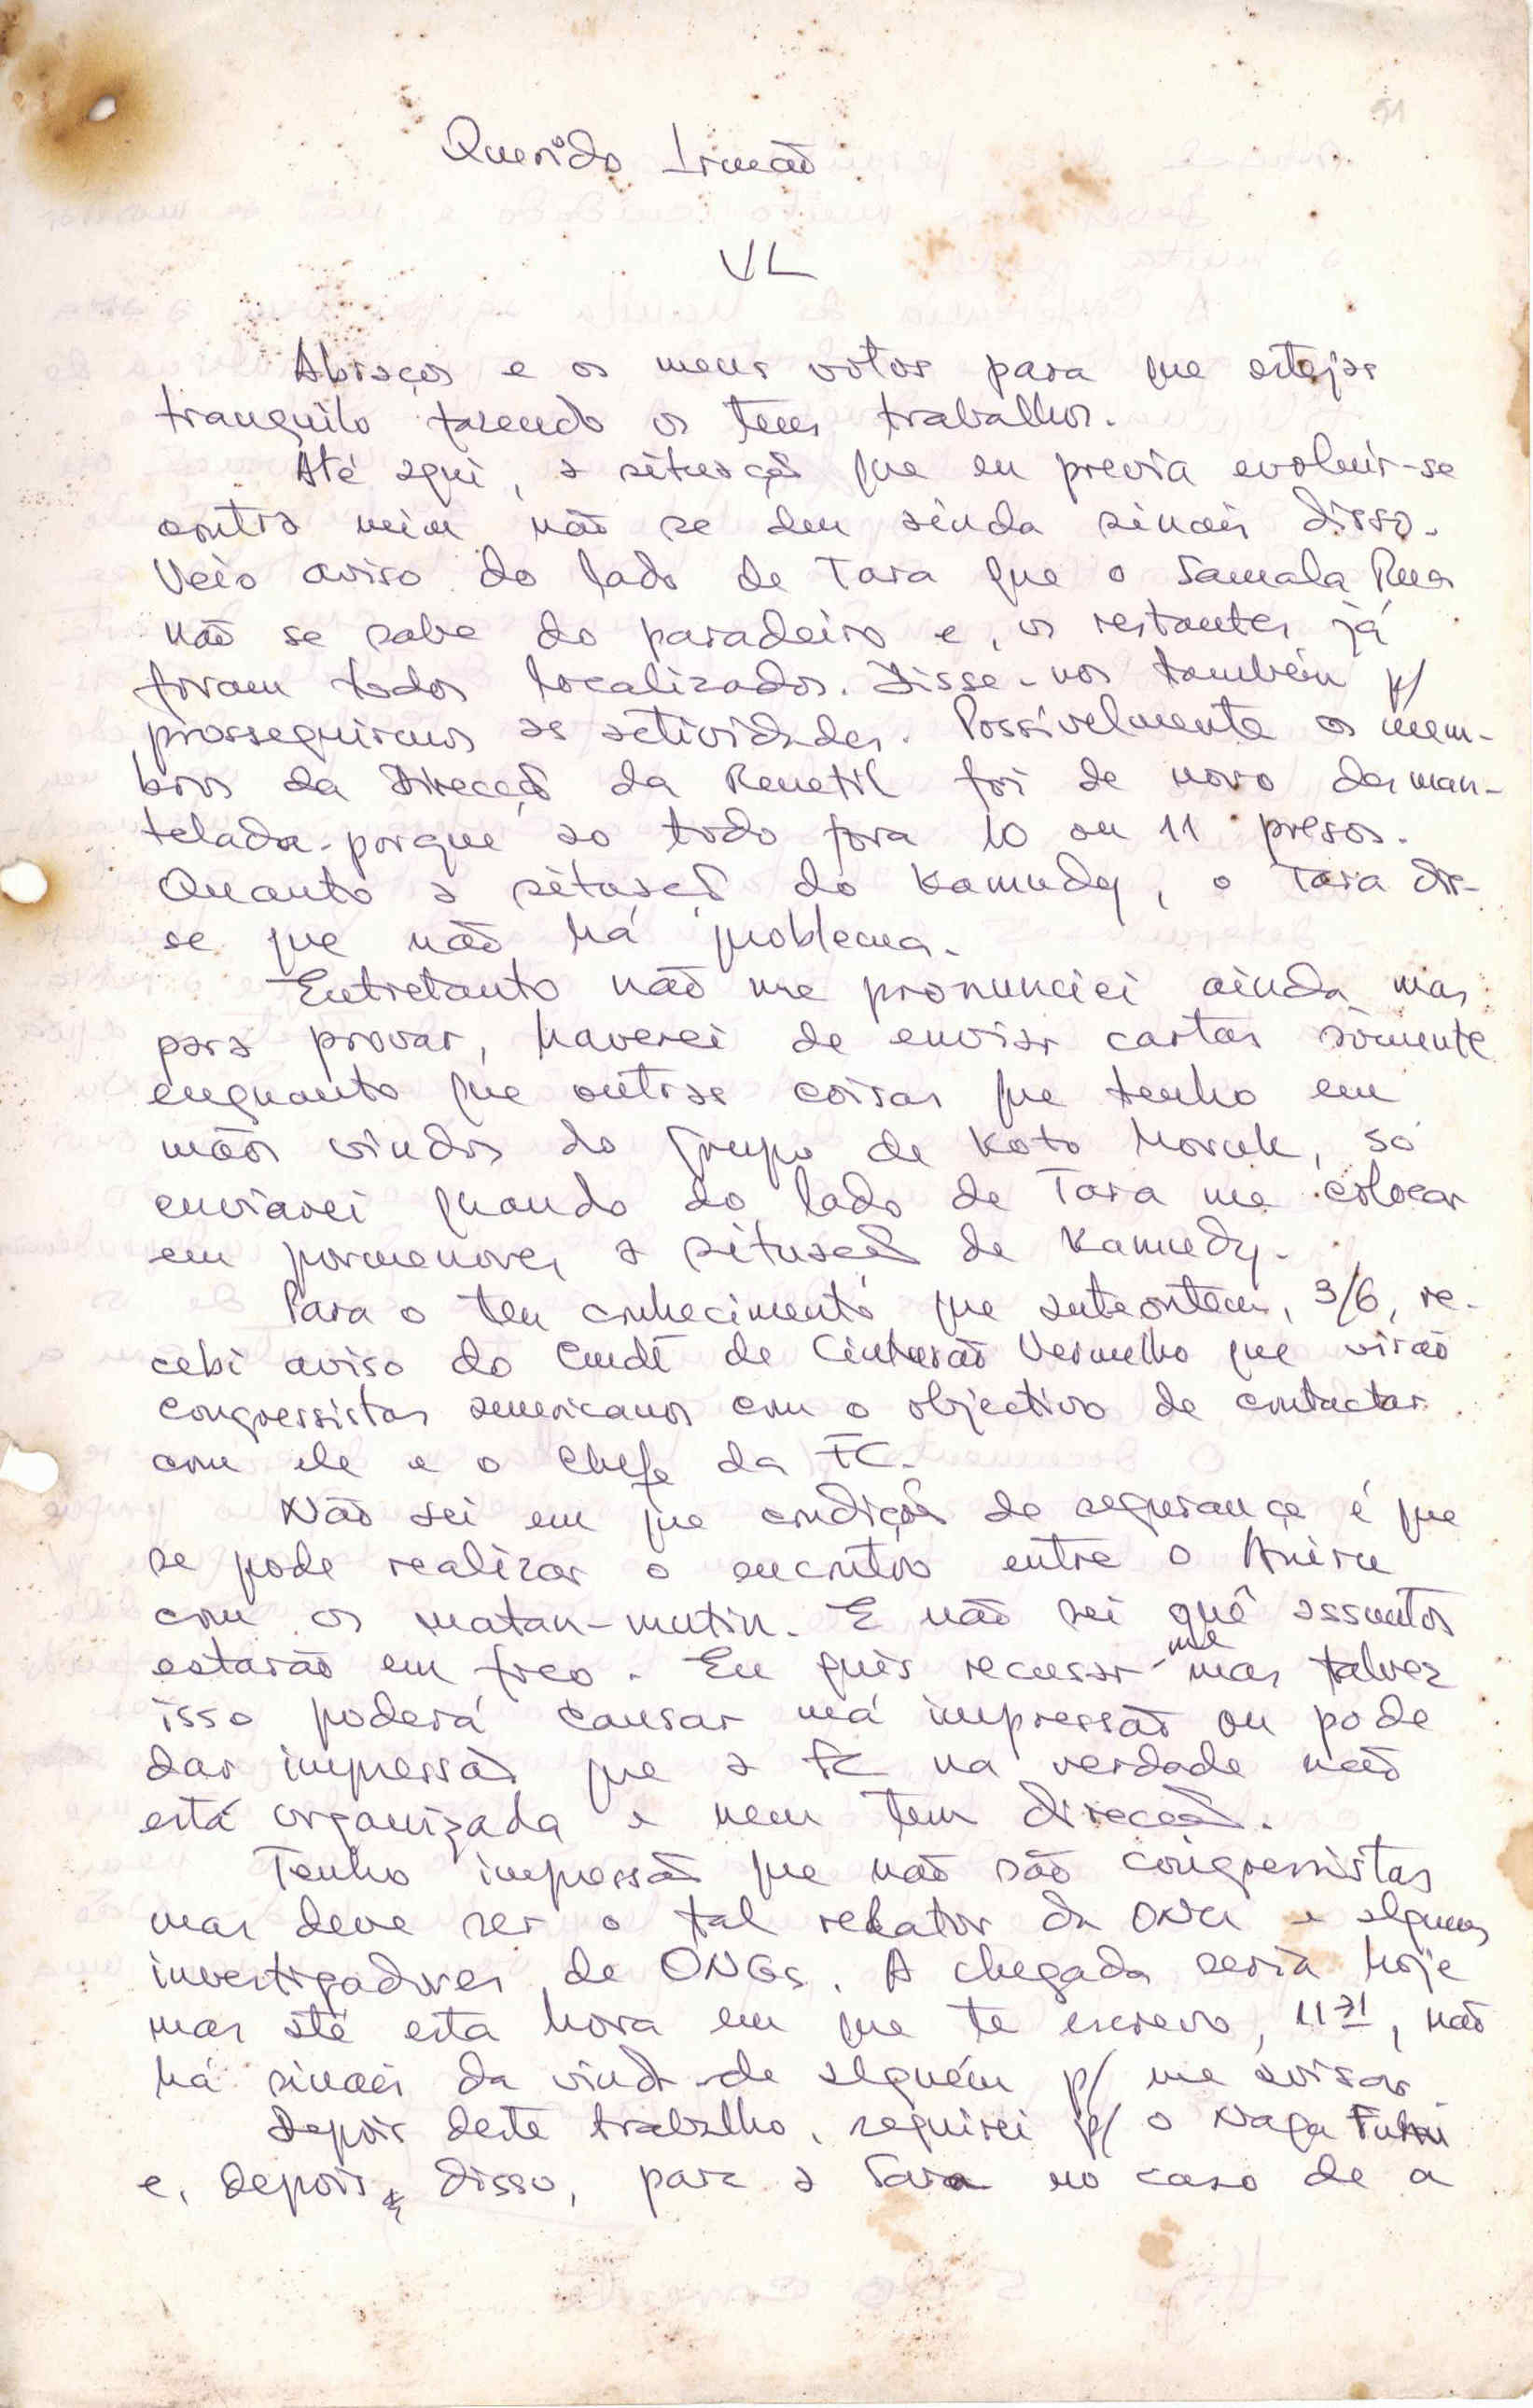 51
Querido Irmão
VL
Abraços e os meus votos para que estejas
tranquilo fazendo os teus trabalhos.
Até aqui, a situação que eu previa evoluir-se
contra mim não se deu ainda sinais disso.
Veio aviso do lado de Tara que o Samala Rua
não se sabe do paradeiro e, os restantes já
foram todos localizados. Disse-nos também p/
prosseguirmos as actividades. Possívelmente os mem-
bros da Direcção da Renetil foi de novo desman-
telada porque ao todo fora 10 ou 11 presos.
Quanto a situação do Kamudy, o Tara dis-
se que não há problema.
Entretanto não me pronunciei ainda mas
para provar, haverei de enviar cartas sòmente
enquanto que outras coisas que tenho em
mãos vindos do Grupo de Koto Moruk, só
enviarei quando do lado de Tara me colocar
em pormenores a situação de Kamudy.
Para o teu conhecimento que anteontem, 3/6, re-
cebi aviso do Cmdt de Cinturão Vermelho que virão
congressistas americanos com o objectivo de contactar
com ele e o Chefe da FC.
Não sei em que condições de segurança é que
se pode realizar o encontro entre o Aniru
com os matan-mutin. E não sei quê assuntos
estarão em foco. Eu quis recusar-me mas talvez
isso poderá causar má impressão ou pode
dar impressão que a FC na verdade não
está organizada e nem tem direcção.
Tenho impressão que não são congressistas
mas deve ser o tal relator da ONU e alguns
investigadores de ONGs. A chegada seria hoje
mas até esta hora em que te escrevo, 11 31, não
há sinais da vinda de alguém p/ me avisar
Depois deste trabalho, seguirei p/ o Naga
e, depois disso, para a no caso de a